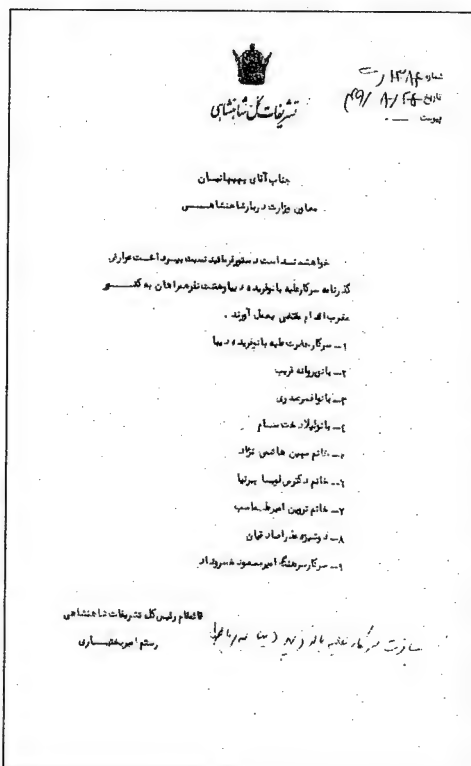 تشریفات کل شاهنشاهی
شماره ۱۳۸۴/ت
تاریخ ۴۹/۸/۲۴
پیوست —
جناب آقای بهبهانیان
معاون وزارت دربار شاهنشاهی
خواهشمند است دستور فرمائید نسبت بپرداخت عوارض
گذرنامه سرکار علیه بانو فریده دیبا و هشت نفر همراهان به کشور
مغرب اقدام مقتضی بعمل آورند .
۱- سرکار حضرت علیه بانو فریده دیبا
۲- بانو پروانه قریب
۳- بانو افسر عدوی
٤- بانو لیلا دخت سام
۵- خانم سیمین هاشمی نژاد
٦- خانم دکتر لویسا پیرنیا
۷- خانم پروین امیر طهماسب
۸- دوشیزه عذرا صادقیان
۹- سرکار سرهنگ امیر مسعود خسروداد
قائمقام رئیس کل تشریفات شاهنشاهی
رستم امیربختیاری
مسافرت سرکار علیه بانو فریده دیبا